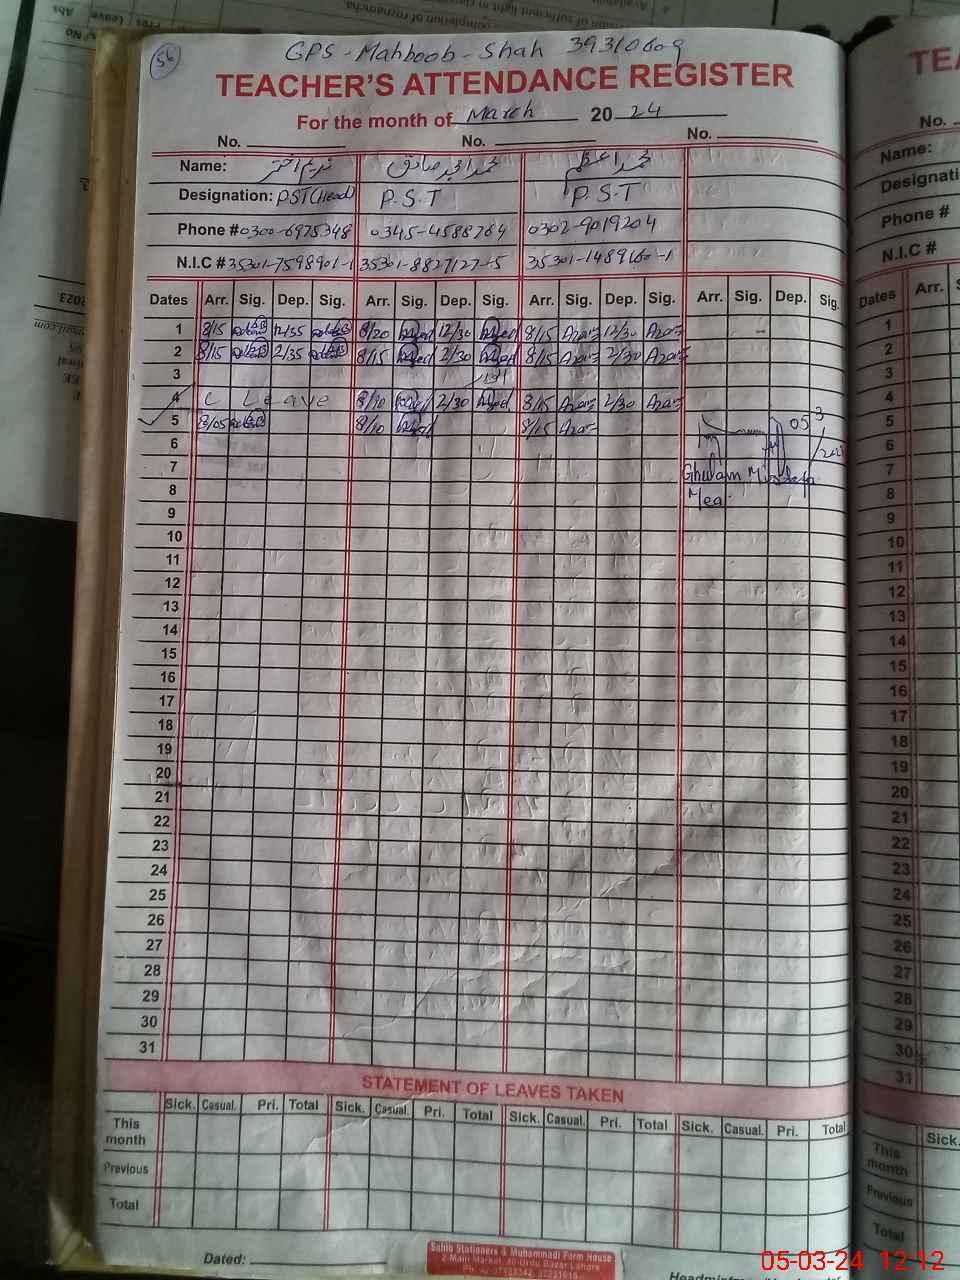 56
GPS - Mahboob - Shah 39310609
TEACHER'S ATTENDANCE REGISTER
For the month of March 2024
No. No. No.
Name: محمد اعظم
Designation: PST (Head) P.S.T P.S.T
Phone # 0300-6975348 0345-4588764 0302-9019204
N.I.C # 35301-7598901-1 35301-8827127-5 35301-1489160-1
Dates Arr. Sig. Dep. Sig. Arr. Sig. Dep. Sig. Arr. Sig. Dep. Sig. Arr. Sig. Dep. Sig.
1 8/15 12/35 8/20 12/30 8/15 Azam 12/30 Azam
2 8/15 2/35 8/15 2/30 8/15 Azam 2/30 Azam
3
4 C Leave 8/10 2/30 8/15 Azam 2/30 Azam
5 8/05 8/10 8/15 Azam 05/3/2024
6
7 Ghulam Mustafa
8 Mea
9
10
11
12
13
14
15
16
17
18
19
20
21
22
23
24
25
26
27
28
29
30
31
STATEMENT OF LEAVES TAKEN
Sick. Casual. Pri. Total Sick. Casual. Pri. Total Sick. Casual. Pri. Total Sick. Casual. Pri. Total
This month
Previous
Total
Dated:
Sahib Stationers & Muhammadi Form House
2 Main Market, 40-Urdu Bazar Lahore
TEA
No.
Name:
Designati
Phone #
N.I.C #
Dates Arr.
1
2
3
4
5
6
7
8
9
10
11
12
13
14
15
16
17
18
19
20
21
22
23
24
25
26
27
28
29
30
31
Sick.
This month
Previous
Total
05-03-24 12:12